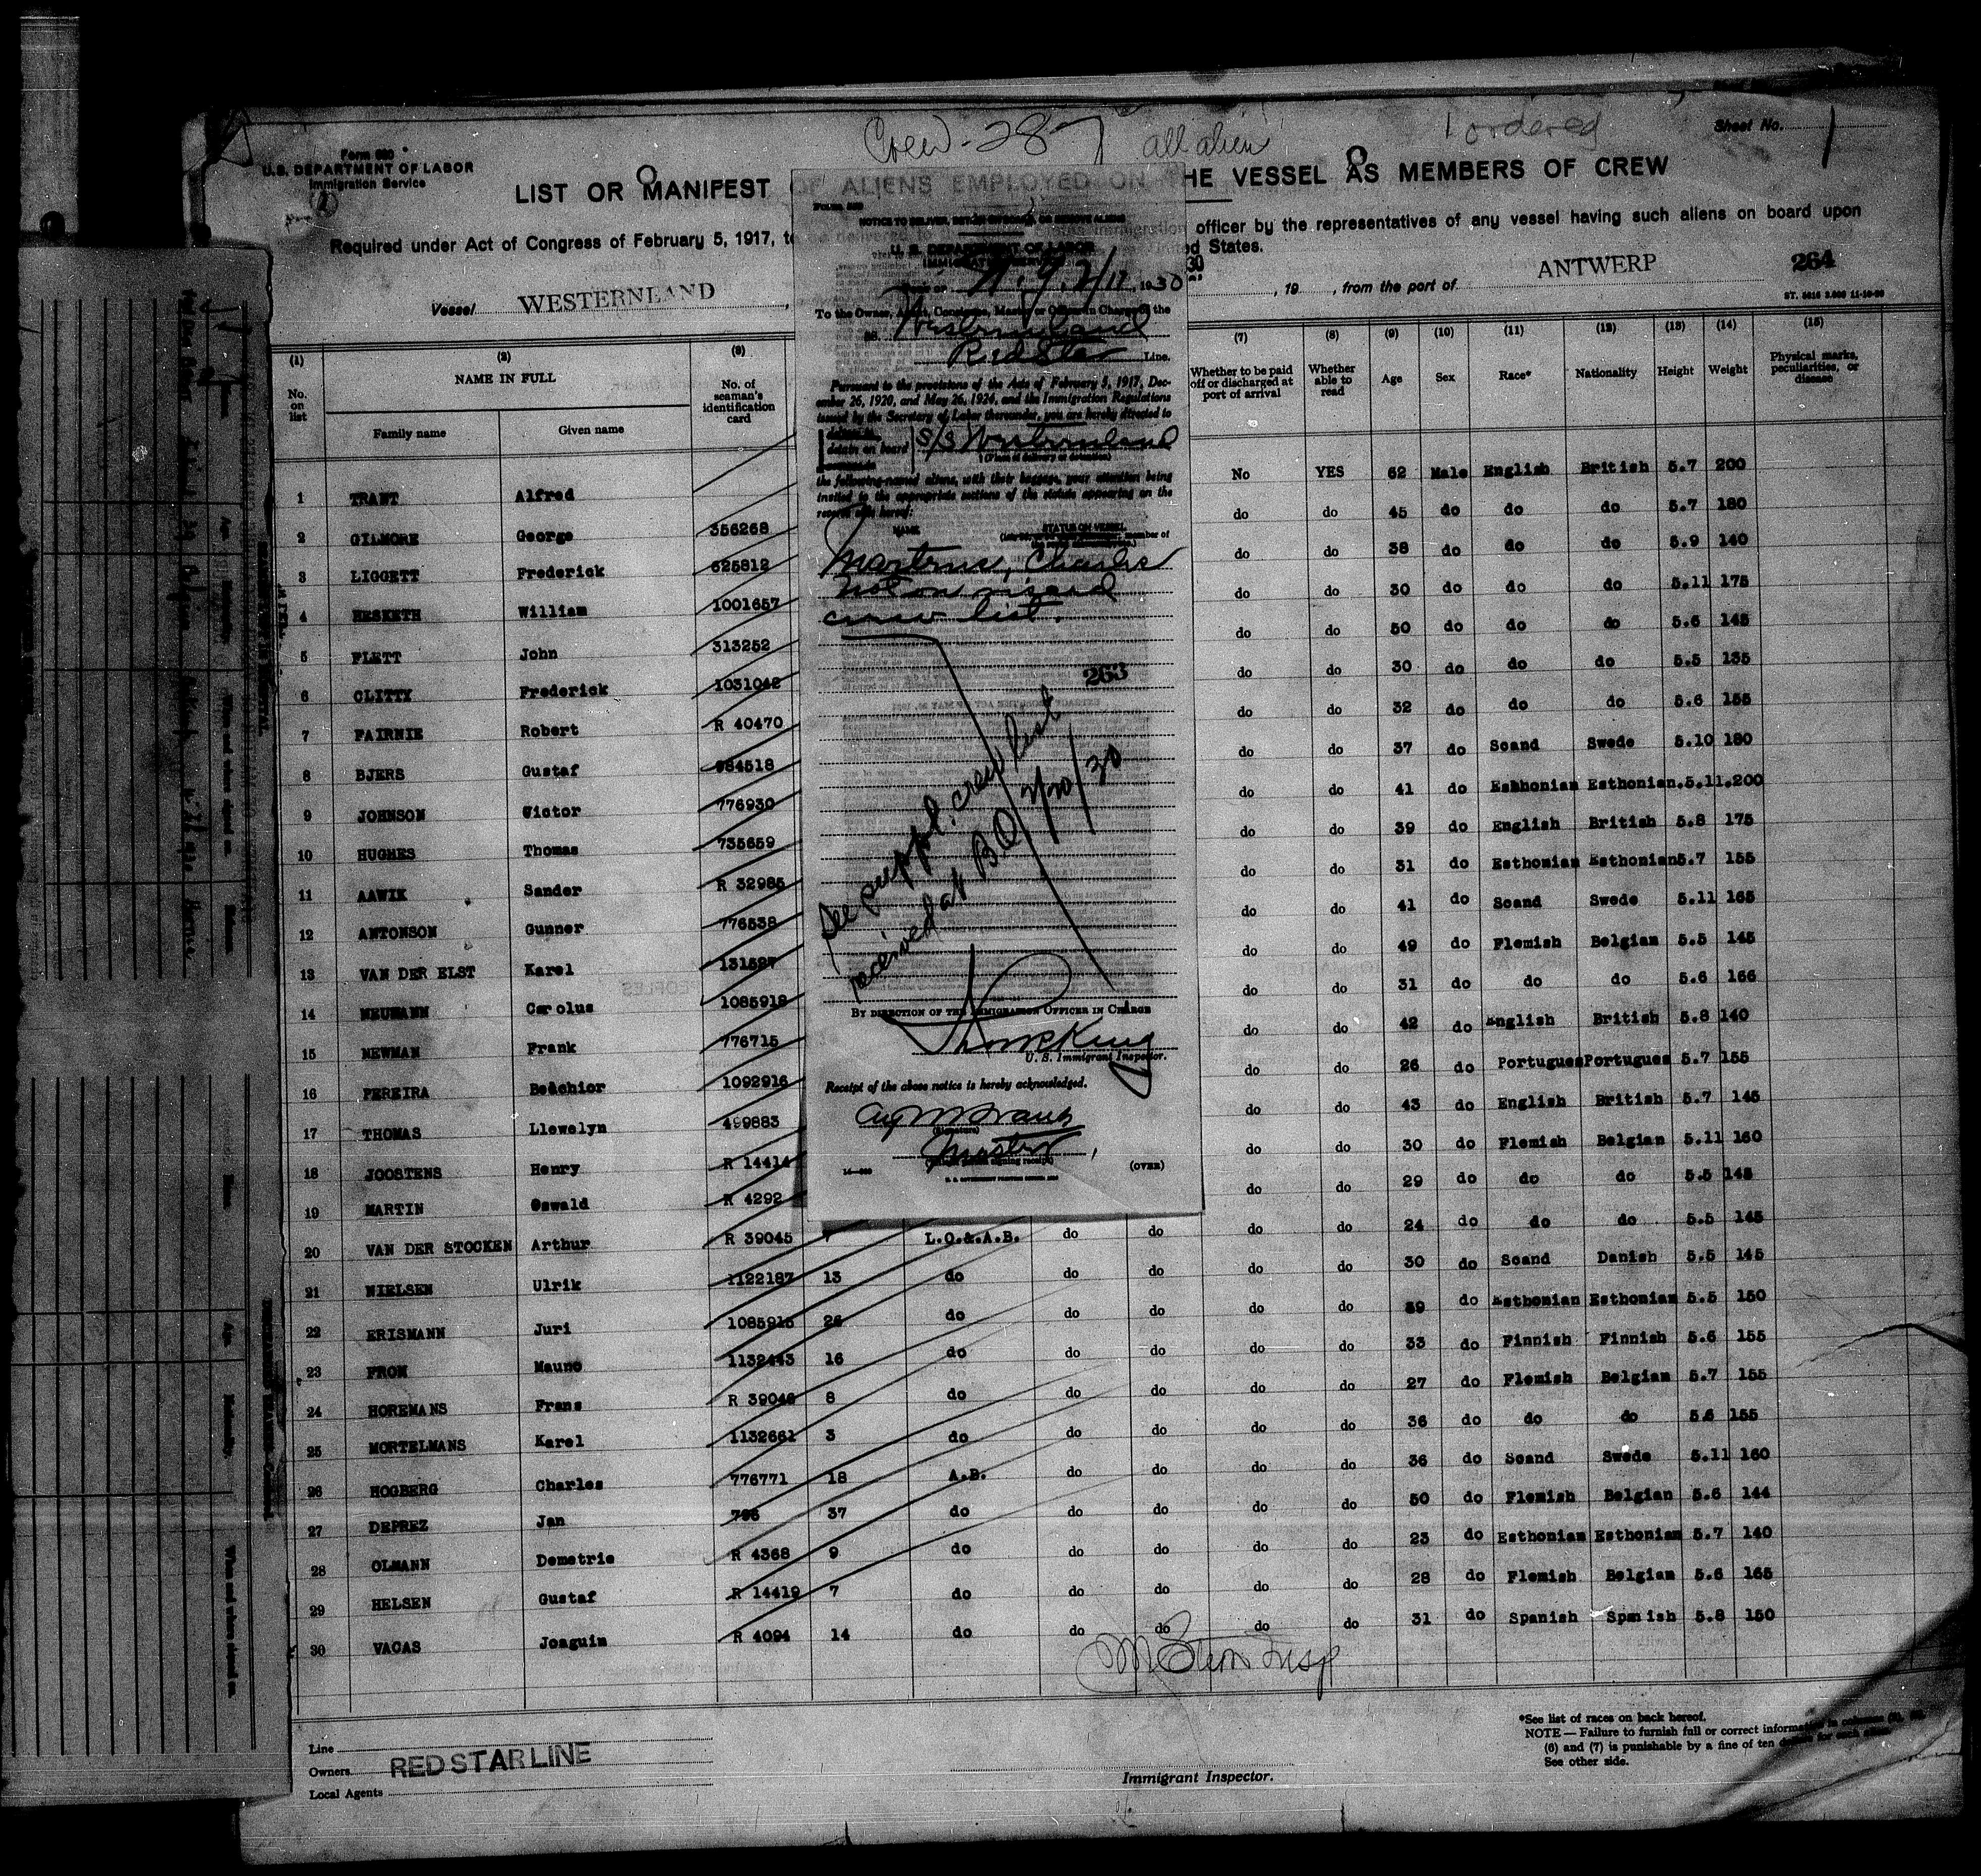 Crew - 287 all alien 1 ordered
Sheet No. 1
Form 680
U.S. DEPARTMENT OF LABOR
Immigration Service
LIST OR MANIFEST OF ALIENS EMPLOYED ON THE VESSEL AS MEMBERS OF CREW
Required under Act of Congress of February 5, 1917, to be delivered officer by the representatives of any vessel having such aliens on board upon
States.
Vessel WESTERNLAND , 19 , from the port of ANTWERP 264
(1) (2) (3) (7) (8) (9) (10) (11) (12) (13) (14) (15)
No. on list NAME IN FULL No. of seaman's identification card Whether to be paid off or discharged at port of arrival Whether able to read Age Sex Race* Nationality Height Weight Physical marks, peculiarities, or disease
Family name Given name
1 TRANT Alfred No YES 62 Male English British 5.7 200
2 GILMORE George 356268 do do 45 do do do 5.7 180
3 LIGGETT Frederick 625812 do do 38 do do do 5.9 140
4 HESKETH William 1001657 do do 30 do do do 5.11 175
5 FLETT John 313252 do do 50 do do do 5.6 145
6 CLITTY Frederick 1031042 do do 30 do do do 5.5 135
7 FAIRNIE Robert R 40470 do do 32 do do do 5.6 155
8 BJERS Gustaf 984518 do do 37 do Scand Swede 5.10 180
9 JOHNSON Victor 776930 do do 41 do Esthonian Esthonian.5.11.200
10 HUGHES Thomas 735659 do do 39 do English British 5.8 175
11 AAWIK Sander R 32985 do do 31 do Esthonian Esthonian5.7 155
12 ANTONSON Gunner 776538 do do 41 do Scand Swede 5.11 165
13 VAN DER ELST Karel 131527 do do 49 do Flemish Belgian 5.5 145
14 NEUMANN Carolus 1085918 do do 31 do do do 5.6 166
15 NEWMAN Frank 776715 do do 42 do English British 5.8 140
16 PEREIRA Belchior 1092916 do do 26 do Portugues Portugues 5.7 155
17 THOMAS Llewelyn 499883 do do 43 do English British 5.7 145
18 JOOSTENS Henry R 14414 do do 30 do Flemish Belgian 5.11 160
19 MARTIN Oswald R 4292 do do 29 do do do 5.5 145
20 VAN DER STOCKEN Arthur R 39045 L.O.&.A.B. do do do do 24 do do do 5.5 145
21 NIELSEN Ulrik 1122187 13 do do do do do 30 do Scand Danish 5.5 145
22 ERISMANN Juri 1085915 26 do do do do do 39 do Esthonian Esthonian 5.5 150
23 FROM Mauno 1132443 16 do do do do do 33 do Finnish Finnish 5.6 155
24 HOREMANS Frans R 39046 8 do do do do do 27 do Flemish Belgian 5.7 155
25 MORTELMANS Karel 1132661 3 do do do do do 36 do do do 5.6 155
26 HOGBERG Charles 776771 18 A.B. do do do do 36 do Scand Swede 5.11 160
27 DEPREZ Jan 796 37 do do do do do 50 do Flemish Belgian 5.6 144
28 OLMANN Demetrie R 4368 9 do do do do do 23 do Esthonian Esthonian 5.7 140
29 HELSEN Gustaf R 14419 7 do do do do do 28 do Flemish Belgian 5.6 165
30 VACAS Joaguin R 4094 14 do do do do do 31 do Spanish Spanish 5.8 150
NOTICE TO DELIVER, DETAIN ON BOARD, OR REMOVE ALIENS
U. S. DEPARTMENT OF LABOR
IMMIGRATION SERVICE
N.Y. 2/17, 1930
To the Owner, Agent, Consignee, Master or Officer in Charge of the
SS. Westernland
Red Star Line.
Pursuant to the provisions of the Acts of February 5, 1917, Dec-
ember 26, 1920, and May 26, 1924, and the Immigration Regulations
issued by the Secretary of Labor thereunder, you are hereby directed to
detain on board S/S Westernland
(Place of delivery or detention)
the following-named aliens, with their baggage, your attention being
invited to the appropriate sections of the statute appearing on the
reverse side hereof:
NAME STATUS ON VESSEL
Martens, Charles
not on visaed
crew list.
263
See suppl. crew list
received at B.O. 2/20/30
BY DIRECTION OF THE IMMIGRATION OFFICER IN CHARGE
U. S. Immigrant Inspector.
Receipt of the above notice is hereby acknowledged.
(Signature)
Master
(OVER)
M Stern Insp
Line
Owners RED STAR LINE
Local Agents
Immigrant Inspector.
*See list of races on back hereof.
NOTE — Failure to furnish full or correct information in columns
(6) and (7) is punishable by a fine of ten dollars for each alien.
See other side.